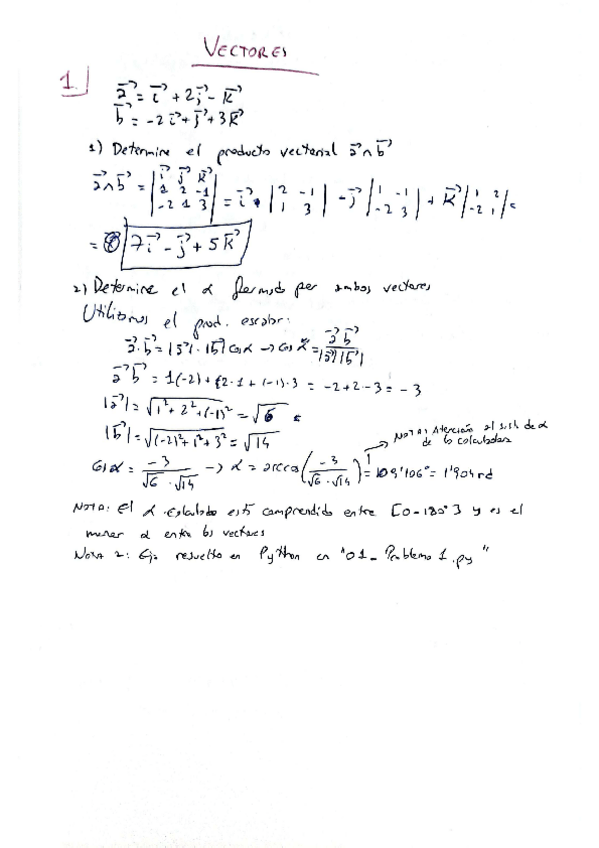 VECTORES
1.
a⃗ = i⃗ + 2j⃗ - k⃗
b⃗ = -2i⃗ + j⃗ + 3k⃗
1) Determine el producto vectorial a⃗∧b⃗
a⃗∧b⃗ = |i⃗ j⃗ k⃗; 1 2 -1; -2 1 3| = i⃗ · |2 -1; 1 3| - j⃗ |1 -1; -2 3| + k⃗ |1 2; -2 1| =
= 7i⃗ - j⃗ + 5k⃗
2) Determine el α formado por ambos vectores
Utilizamos el prod. escalar:
a⃗·b⃗ = |a⃗|·|b⃗| cos α → cos α = a⃗·b⃗ / |a⃗||b⃗|
a⃗·b⃗ = 1(-2) + (2·1 + (-1)·3 = -2+2-3 = -3
|a⃗| = √(1² + 2² + (-1)²) = √6
|b⃗| = √((-2)² + 1² + 3²) = √14
NOTA: Atención al de α
de la calculadora
cos α = -3 / √6 · √14 → α = arccos(-3 / √6 · √14) = 109'106° = 1'904 rd
NOTA: El α calculado está comprendido entre [0-180°] y es el
menor α entre los vectores
NOTA 2: Ejo resuelto en Python en "01_Problema 1.py"